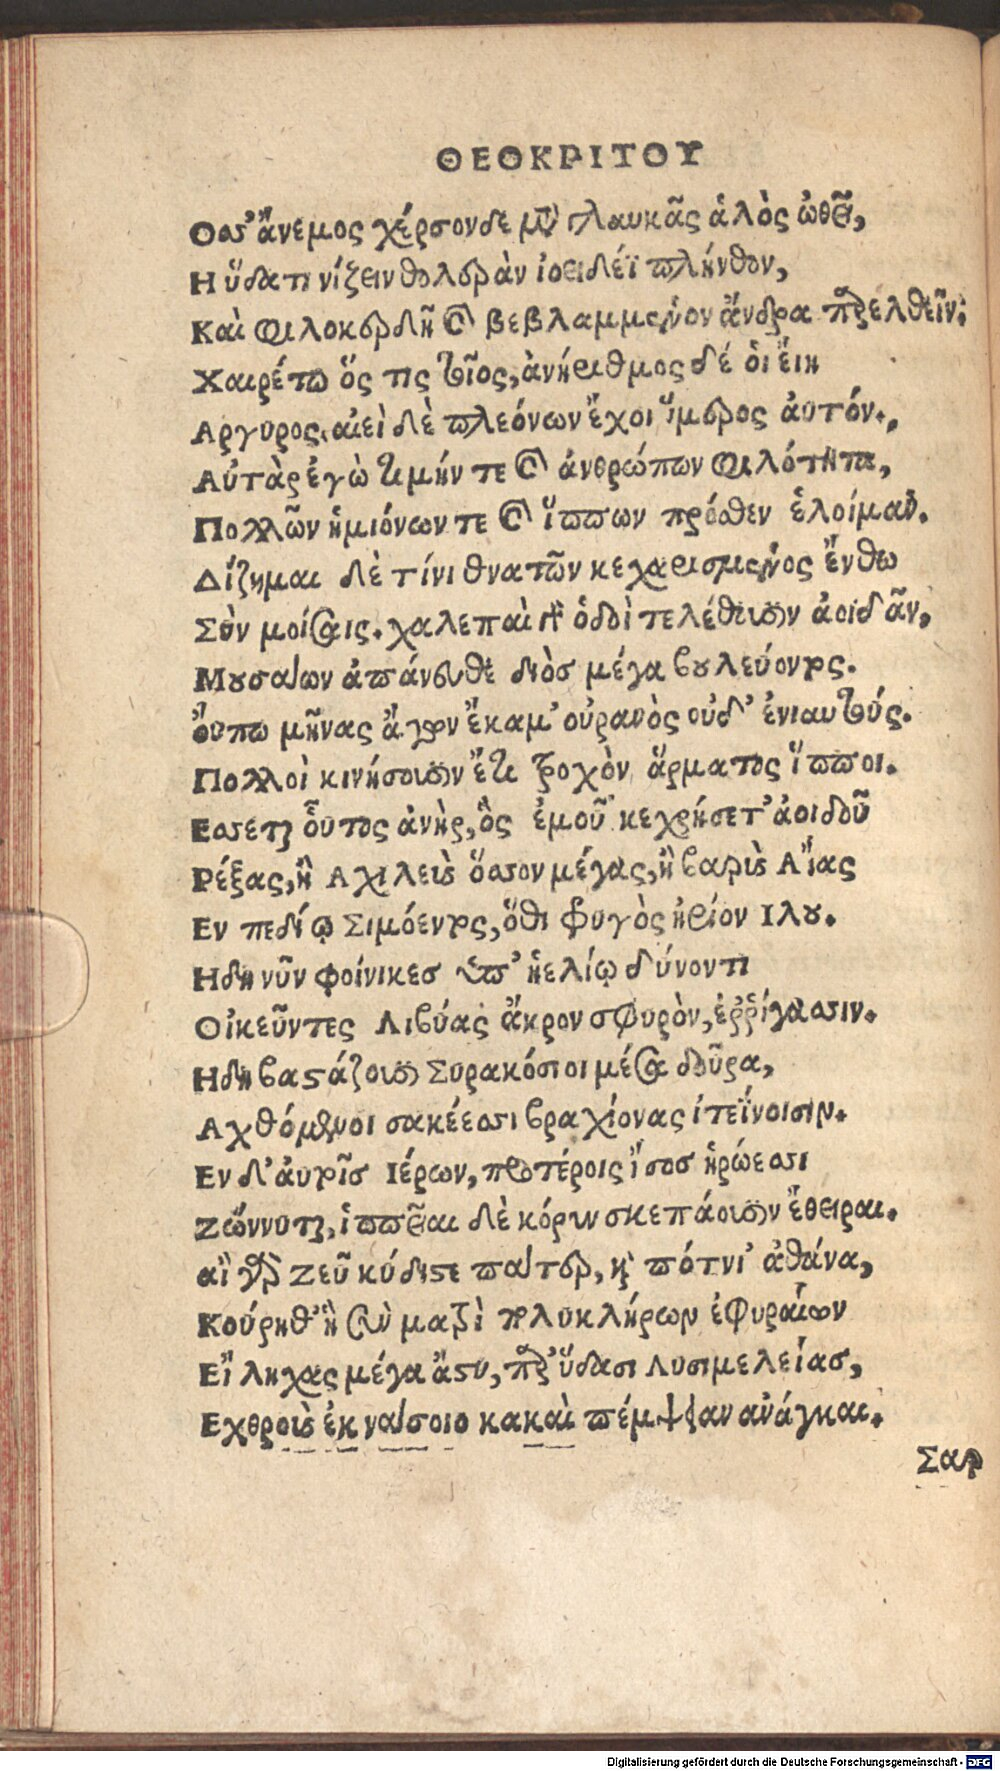 ΘΕΟΚΡΙΤΟΥ
Οσσ' ἄνεμος χέρσονδε μετὰ γλαυκᾶς ἁλὸς ὠθεῖ,
Η ὕδατι νίζειν θολερὰν ἰοειδέϊ πλήνθον,
Καὶ φιλοκερδῆ καὶ βεβλαμμένον ἄνδρα παρελθεῖν·
Χαιρέτω ὅς τις τοῖος, ἀνήριθμος δέ ὁι ἔιη
Αργυρος, αἰεὶ δὲ πλεόνων ἔχοι ἵμερος ἀυτόν.
Αὐτὰρ ἐγὼ τιμήν τε καὶ ἀνθρώπων φιλότητα,
Πολλῶν ἡμιόνων τε καὶ ἵππων πρόσθεν ἑλοίμαν.
Δίζημαι δὲ τίνι θνατῶν κεχαρισμένος ἔνθω
Σὺν μοίσαις. χαλεπαὶ γὰρ ὁδοὶ τελέθουσιν ἀοιδᾶν,
Μουσαίων ἀπάνευθε διὸσ μέγα βουλεύοντος.
ὄυπω μῆνας ἄγων ἔκαμ' οὐρανὸς οὐδ' ἐνιαυτούς.
Πολλοὶ κινήσουσιν ἔτι τροχὸν ἅρματος ἵπποι.
Εσσεται οὗτος ἀνὴρ, ὃς ἐμοῦ κεχρήσετ' ἀοιδοῦ
Ρέξας, ἢ Αχιλεὺς ὅσσον μέγας, ἢ βαρὺς Αἴας
Εν πεδίῳ Σιμόεντος, ὅθι φρυγὸς ἠρίον Ιλου.
Ηδη νῦν φοίνικεσ ὑπ' ἠελίῳ δύνοντι
Οἰκεῦντες Λιβύας ἄκρον σφυρὸν, ἐῤῥίγασσιν.
Ηδη βαστάζουσι Συρακόσιοι μέσα δοῦρα,
Αχθόμενοι σακέεσσι βραχίονας ἰτεΐνοισιν.
Εν δ' ἀυτοῖσ Ιέρων, προτέροις ἴσοσ ἡρώεσσι
Ζώννυται, ἱππεῖαι δὲ κόρυν σκεπάουσιν ἔθειραι.
αἲ γὰρ Ζεῦ κύδιστε πάτερ, καὶ πότνι' ἀθάνα,
Κούρηθ' ἣ σὺν ματρὶ πολυκλήρων ἐφυραίων
Εἴληχας μέγα ἄστυ, παρ' ὕδασι Λυσιμελείασ,
Εχθροὺς ἐκ νάσοιο κακαὶ πέμψαν ἀνάγκαι.
Σαρ
Digitalisierung gefördert durch die Deutsche Forschungsgemeinschaft - DFG